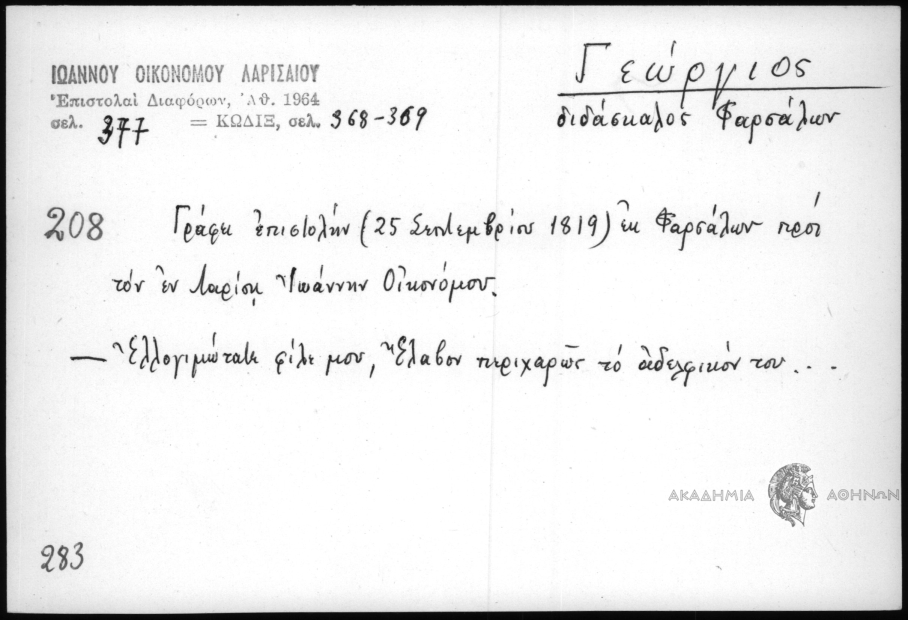 ΙΩΑΝΝΟΥ ΟΙΚΟΝΟΜΟΥ ΛΑΡΙΣΑΙΟΥ
Ἐπιστολαὶ Διαφόρων, Ἀθ. 1964
σελ. 377 = ΚΩΔΙΞ, σελ. 368-369
Γεώργιος
διδάσκαλος Φαρσάλων
208 Γράφει ἐπιστολήν (25 Σεπτεμβρίου 1819) ἐκ Φαρσάλων πρός
τόν ἐν Λαρίσῃ Ἰωάννην Οἰκονόμου.
— Ἐλλογιμώτατε φίλε μου, Ἔλαβον περιχαρῶς τό ἀδελφικόν του...
ΑΚΑΔΗΜΙΑ ΑΘΗΝΩΝ
283